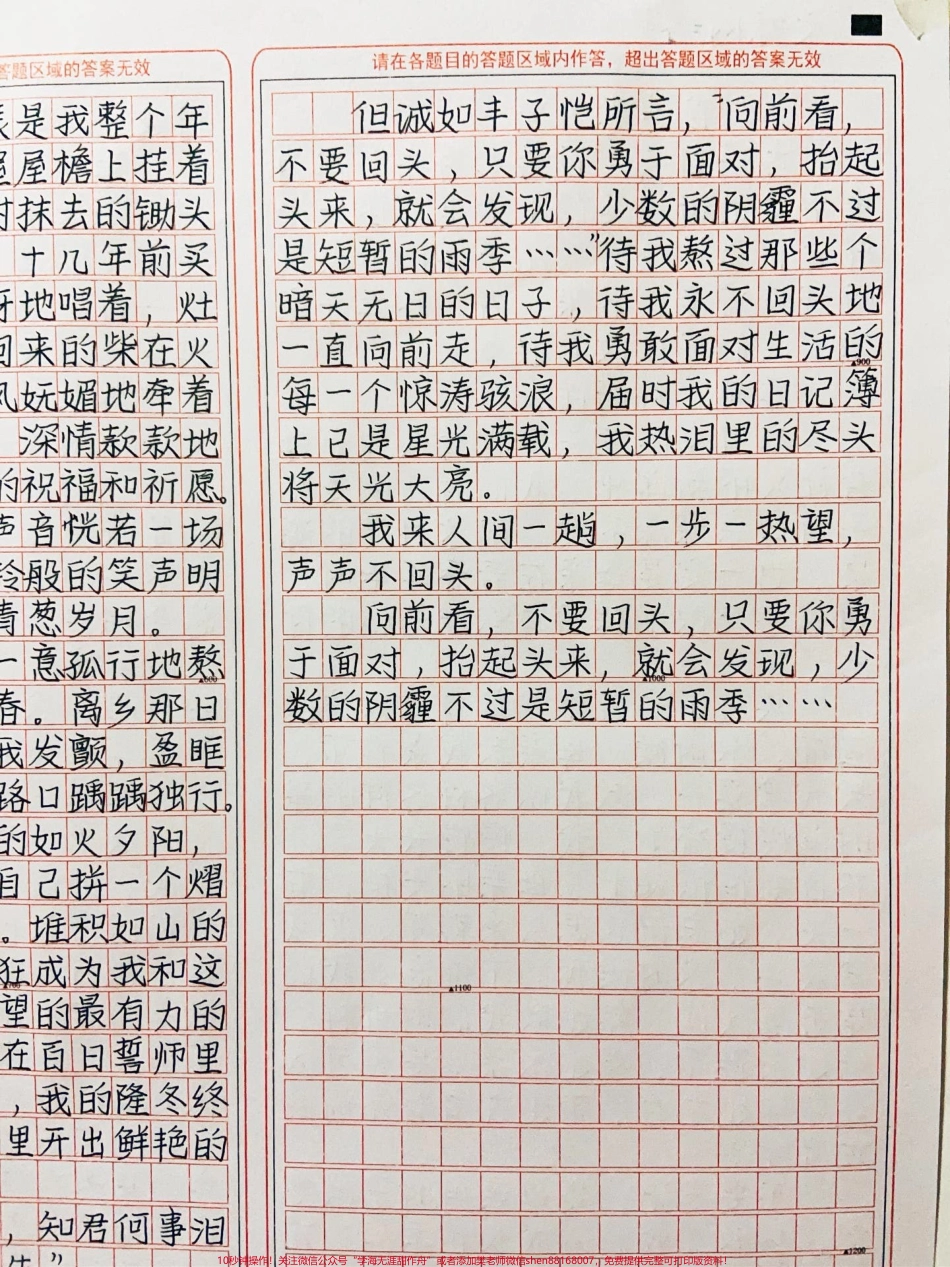 答题区域的答案无效
是我整个年
屋檐上挂着
抹去的锄头
十几年前买
地唱着，灶
回来的柴在火
风妩媚地牵着
深情款款地
的祝福和祈愿。
声音恍若一场
铃般的笑声明
青葱岁月。
一意孤行地熬
▲800
春。离乡那日
我发颤，盈眶
路口踽踽独行。
的如火夕阳，
自己拼一个熠
。堆积如山的
狂成为我和这
▲700
望的最有力的
在百日誓师里
，我的隆冬终
里开出鲜艳的
，知君何事泪
请在各题目的答题区域内作答，超出答题区域的答案无效
但诚如丰子恺所言，“向前看，
不要回头，只要你勇于面对，抬起
头来，就会发现，少数的阴霾不过
是短暂的雨季……”待我熬过那些个
暗天无日的日子，待我永不回头地
一直向前走，待我勇敢面对生活的
▲900
每一个惊涛骇浪，届时我的日记簿
上已是星光满载，我热泪里的尽头
将天光大亮。
我来人间一趟，一步一热望，
声声不回头。
向前看，不要回头，只要你勇
于面对，抬起头来，就会发现，少
▲1000
数的阴霾不过是短暂的雨季……
▲1100
▲1200
10秒钟操作！关注微信公众号“学海无涯甜作舟”或者添加樊老师微信shen88168007，免费提供完整可打印版资料！